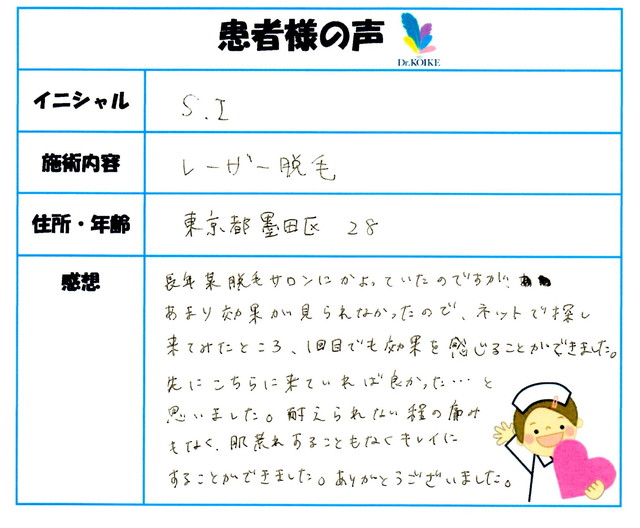 患者様の声
Dr.KOIKE
イニシャル S.I
施術内容 レーザー脱毛
住所・年齢 東京都墨田区 28
感想
長年某脱毛サロンにかよっていたのですが、
あまり効果が見られなかったので、ネットで探し
来てみたところ、1回目でも効果を感じることができました。
先にこちらに来ていれば良かった…と
思いました。耐えられない程の痛み
もなく、肌荒れすることもなくキレイに
することができました。ありがとうございました。